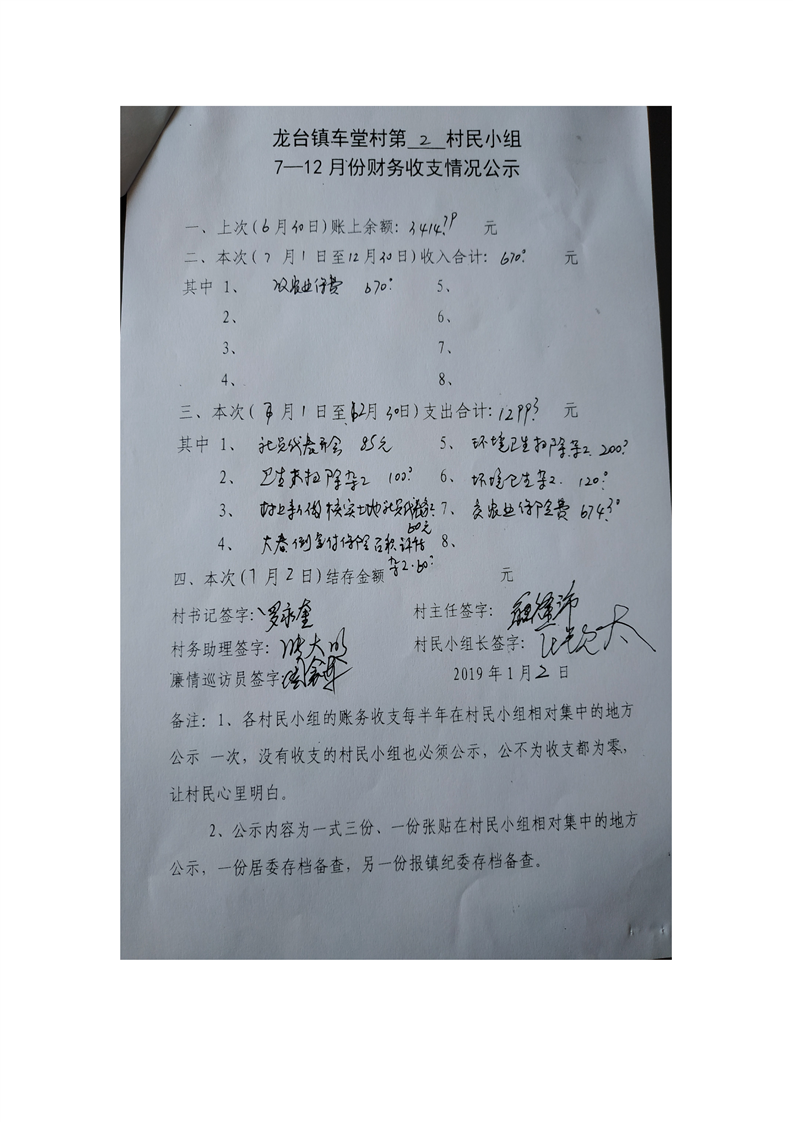 龙台镇车堂村第 2 村民小组
7—12月份财务收支情况公示
一、上次(6月30日)账上余额: 元
二、本次(7月1日至12月30日)收入合计: 670 元
其中 1、 收农业保费 670 5、
2、 6、
3、 7、
4、 8、
三、本次(7月1日至12月30日)支出合计: 元
其中 1、社员代表开会 85元 5、环境卫生扫除杂工 200
2、 卫生 扫除杂工 100 6、环境卫生杂工 120
3、 核实土地社员代表 7、交农业保险费
60元
4、 大春 保险面积 8、
杂工 60
四、本次(1月2日)结存金额 元
村书记签字: 罗永奎 村主任签字:
村务助理签字: 村民小组长签字:
廉情巡访员签字: 2019年1月2日
备注：1、各村民小组的账务收支每半年在村民小组相对集中的地方
公示 一次，没有收支的村民小组也必须公示，公不为收支都为零，
让村民心里明白。
2、公示内容为一式三份、一份张贴在村民小组相对集中的地方
公示，一份居委存档备查，另一份报镇纪委存档备查。